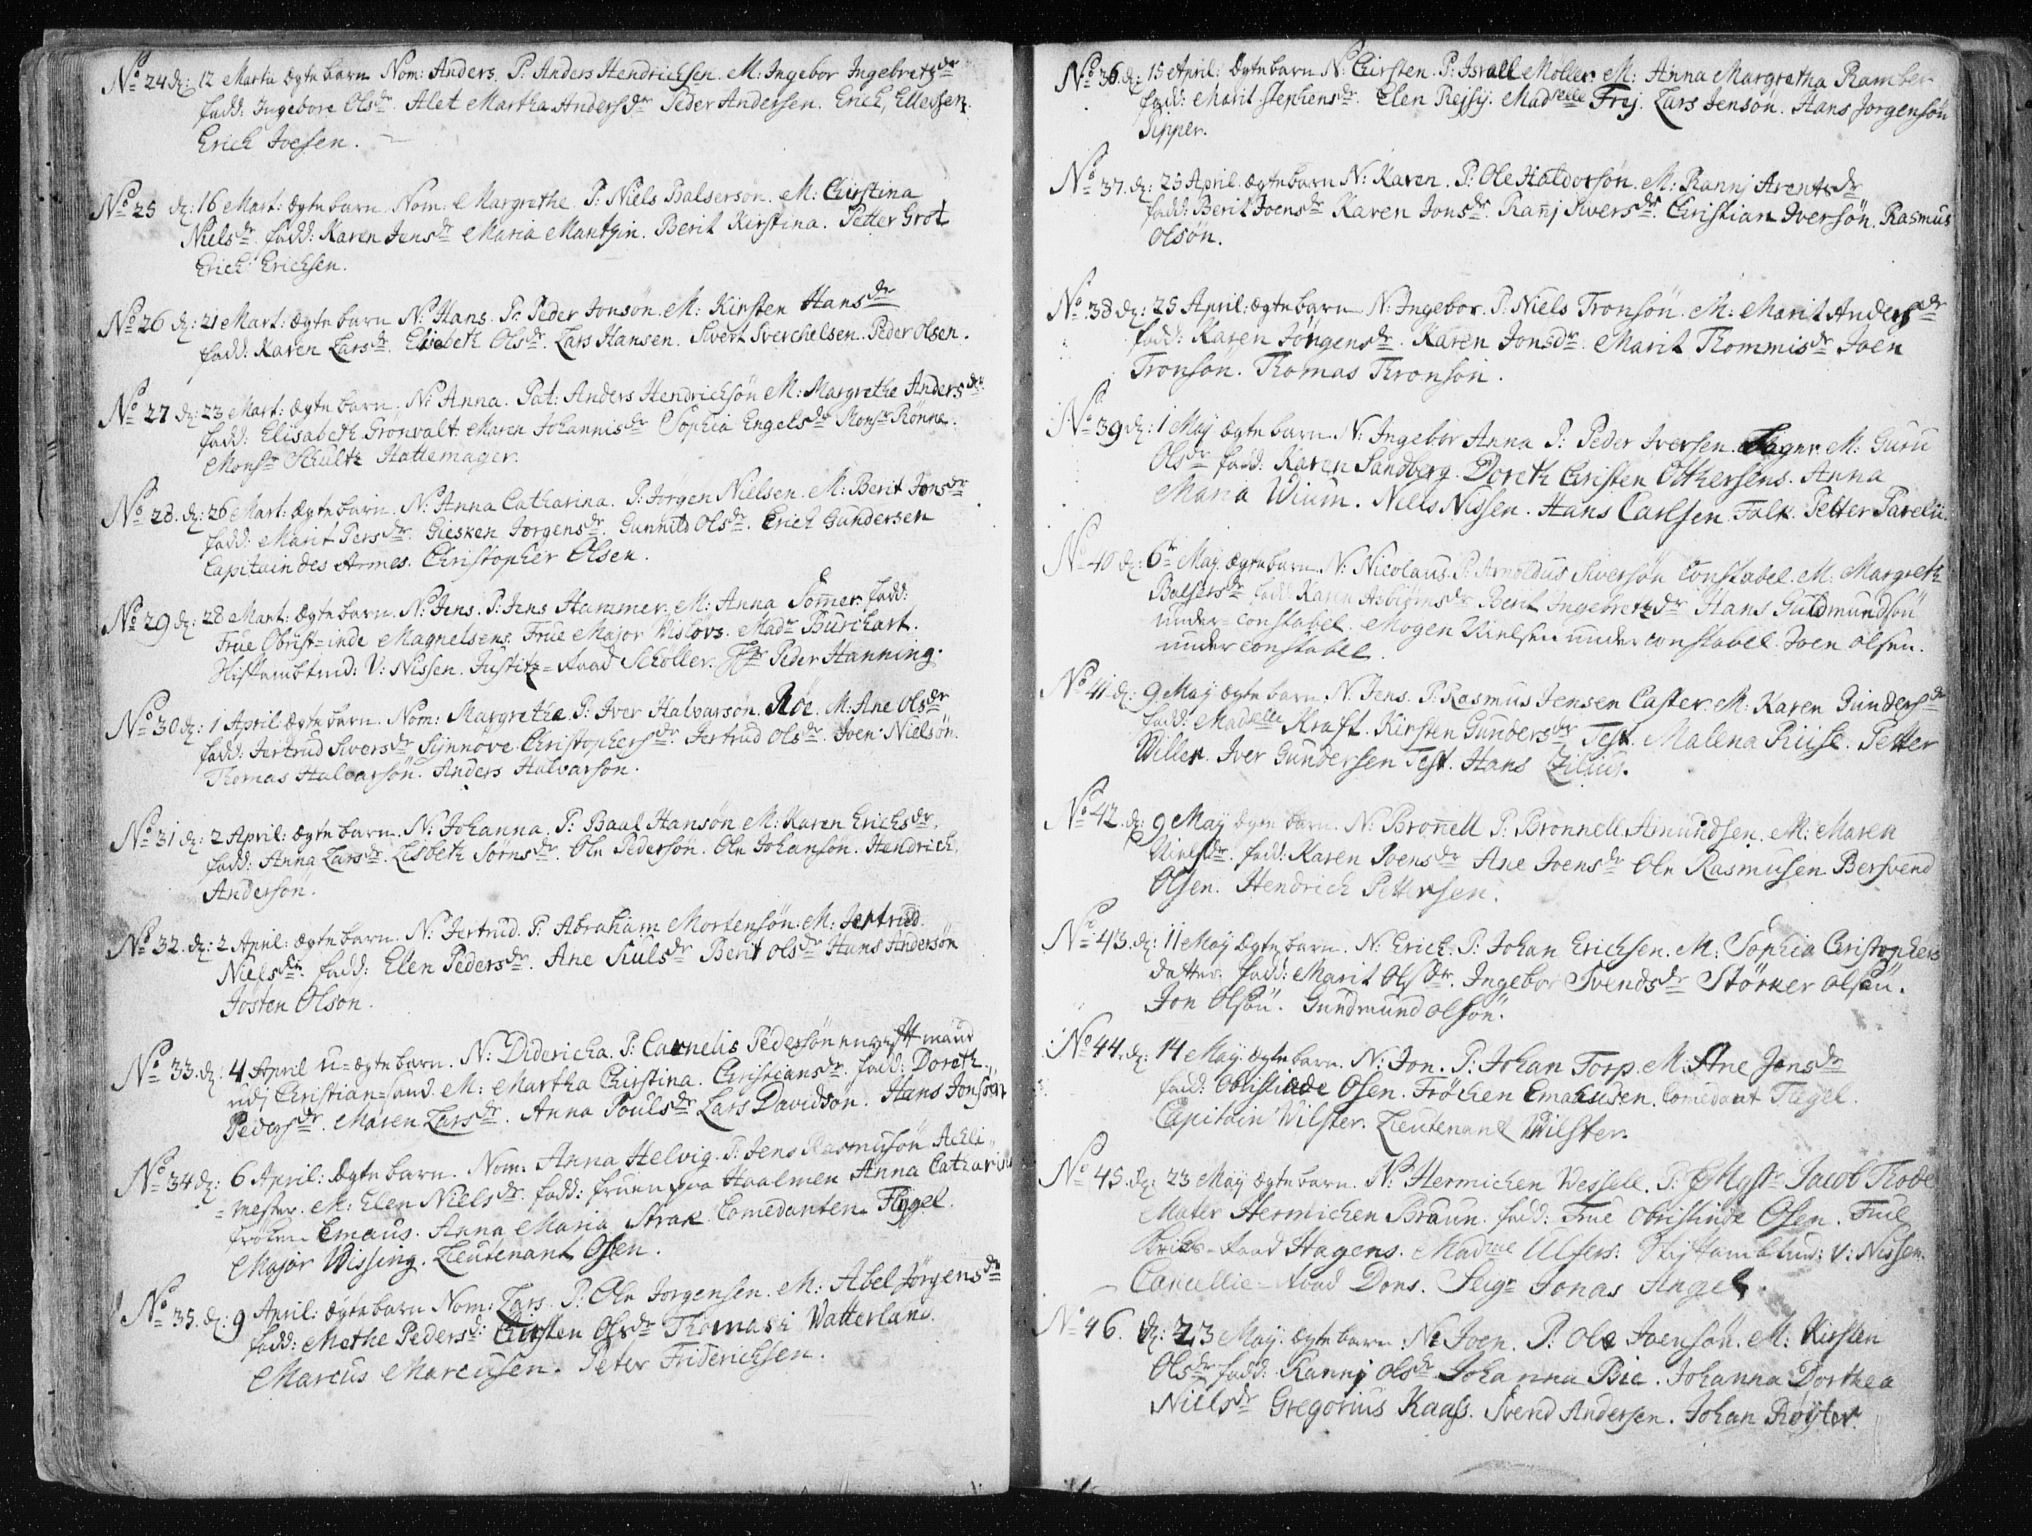 No 24 d: 12 Martii ægte barn Nom: Anders. P: Anders Hendrichsen. M: Ingebor Ingebretzdr
fadd: Ingebore Olsdr. Alet Martha Andersdr Peder Andersen. Erich Ellefsen.
Erich Joesen.
No 25 d: 16 Mart: ægte barn Nom: Margrethe P: Niels Balsersøn. M: Chirstina
Nielsdr. fadd: Karen Jensdr Maria Mantzin. Berit Kirstina. Petter Grot
Erich Erichsen.
No 26 d: 21 Mart: ægte barn N: Hans. P: Peder Jonsøn. M: Kirsten Hansdr
fadd: Karen Larsdr. Elisebeth Olsdr. Lars Hansen. Sivert Sverchelsen. Peder Olsen.
No 27 d: 23 Mart: ægte barn. N: Anna. Pat: Anders Hendrichsøn M: Margrethe Andersdr.
fadd: Elisabeth Gronvalt. Maren Johannisdr Sophia Engelsdr Monsr Rönne.
Monsr Schultz Hattemager.
No 28. d: 26 Mart: ægte barn. N: Anna Catharina. P: Jorgen Nielsen. M: Berit Jonsdr
fadd: Marit Persdr. Giesken Jorgensdr. Gunnild Olsdr. Erich Gundersen
Capitain des Armes. Christopher Olsen.
No 29 d: 28 Mart: ægte barn. N: Jens. P: Jens Hammer. M: Anna Somer. fadd:
Frue Obrist-inde Magnelsens. Frue Major Vislövs. Madr Burchart.
Stiftambtmd: V: Nissen. Justitz-Raad Schöller. Hr Peder Hanning.
No 30 d: 1 April ægte barn. Nom: Margrethe. P: Iver Halvarsøn. Röe. M: Ane Olsdr
fadd: Jertrud Siversdr Synnöve Christophersdr. Jertrud Olsdr. Joen Nielsøn.
Thomas Halvarsøn. Anders Halvarsøn.
No 31 d: 2 April: ægte barn. N: Johanna. P: Baal Hansøn M: Karen Erichsdr.
fadd: Anna Larsdr. Lisbeth Sørnsdr. Ole Pedersøn. Ole Johansøn. Hendrich
Andersøn.
No 32. d: 2 April: ægte barn. N: Jertrud. P: Abraham Mortensøn. M: Jertrud
Nielsdr. fadd: Elen Pedersdr. Ane Siulsdr Berit Olsdr Hans Andersøn
Josten Olsøn.
No 33. d: 4 April u-ægte barn. N: Didericha. P: Carnelis Pedersøn en gift mand
udi Christian-sand. M: Martha Chirstina. Christiansdr. fadd: Doreth
Pedersdr. Maren Larsdr. Anna Poulsdr Lars Davidsøn. Hans Jonsøn
No 34 d: 6 April: ægte barn. Nom: Anna Helvig. P: Jens Rasmusøn Achli-
-mester. M: Elen Nielsdr. fadd: fruen paa Haalmen Anna Catharina
frøken Emaus. Anna Maria Strax. Comedanten Flygel.
Major Wissing. Lieutenant Osen.
No 35. d: 9 April: ægte barn Nom: Lars. P: Ole Jorgensen. M: Abel Jörgensdr
fadd: Methe Pedersd: Chirsten Olsdr Thomas Vatterland.
Marcus Marcusen. Peter Friderichsen.
No 36. d: 15 April: ægte barn N: Chirsten. P: Israell Møller. M: Anna Margretha Ramber
fadd: Marit Stephensdr. Elen Rejsy. Madselle Frej. Lars Jensøn. Hans Jorgensøn
Sipper.
No 37. d: 23 April ægte barn N: Karen. P: Ole Haldorsøn. M: Rannj Arentsdr
fadd: Berit Joensdr Karen Jonsdr. Ranj Siversdr. Christian Iversøn. Rasmus
Olsøn.
No 38 d: 25 April: ægte barn N: Ingebor. P: Niels Tronsøn. M: Marit Andersdr
fadd: Karen Jörgensdr. Karen Jonsdr. Marit Thommisdr Joen
Tronsøn. Thomas Thronsøn.
No 39 d: 1 Maj ægte barn. N: Ingebor Anna P: Peder Iversen Tager. M: Guru
Olsdr fadd: Karen Sandberg. Doreth Chirsten Olthersens. Anna
Maria Wium. Niels Nissen. Hans Carlsen Falk. Petter Parelii.
No 40 d: 6te May ægte barn. N: Nicolaus. P: Arnoldus Siversøn Constabel. M: Margreth
Balsersdr fadd: Karen Asbiørnsdr. Berit Ingebretzdr Hans Guldmundsøn
under-constabel. Mogen Nielsen under constabel. Joen Olsen.
under constabel.
No 41 d: 9 Maÿ ægte barn N: Jens. P: Rasmus Jensen Caster. M: Karen Gundersdr
fadd: Madselle Kraft. Kirsten Gundersdr Test. Malena Riise. Petter
Willer. Iver Gundersen Test. Hans Zilius.
No 42. d: 9 Maÿ ægte barn. N: Bronell P: Bronnell Amundsen. M: Maren
Nielsdr. fadd: Karen Joensdr Ane Joensdr Ole Rasmusen Bersvend
Olsen. Hendrich Pettersen.
No 43. d: 11 May ægte barn. N: Erich. P: Johan Erichsen. M: Sophia Christophers
datter. fadd: Marit Olsdr. Ingebor Svendsdr Störker Olsøn.
Jon Olsøn. Gundmund Olsøn.
No 44. d: 14 May ægte barn. N: Jon. P: Johan Torp. M: Ane Jensdr
fadd: Obristinde Osen. Frøchen Emahusen. Comedant Flegel.
Capitain Wilster. Lieutenant Wilster.
No 45. d: 23 Maÿ ægte barn. N: Hermichen Wessell. P: Mgstr Jacob Thode
Mater Hermichen Braun. fadd: Frue Obristinde Osen. Frue
Krigs-Raad Hagens. Madme Ulsers. Stiftambtmd: V: Nissen.
Cancellie-Raad Dons. Seigr Jonas Angel.
No 46. d: 23 May. ægte barn. N: Joen. P: Ole Joensøn. M: Kirsten
Olsdr fadd: Rannj Olsdr Johanna Bie. Johanna Dorthea
Nielsdr Gregorius Kaass. Svend Andersen. Johan Röyter.